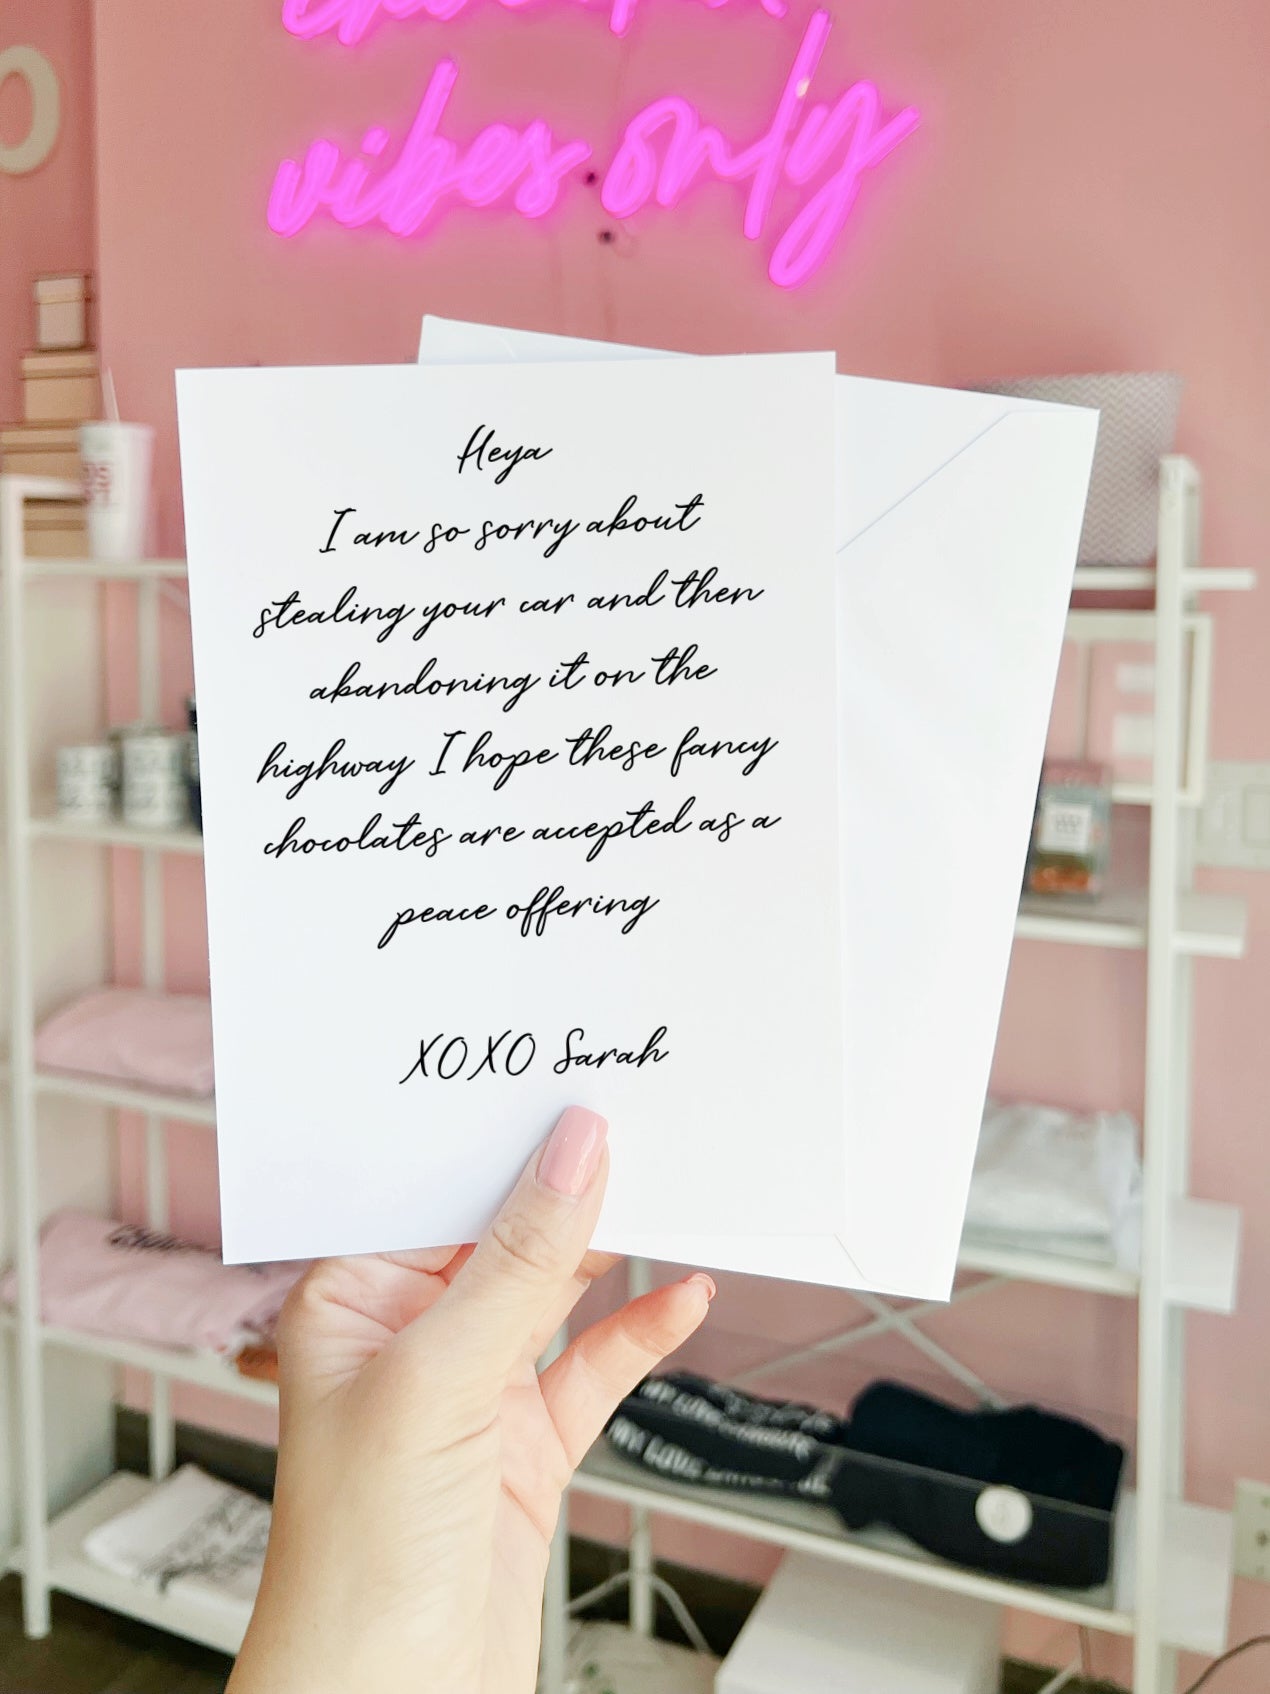 vibes only
Heya
I am so sorry about
stealing your car and then
abandoning it on the
highway I hope these fancy
chocolates are accepted as a
peace offering
XOXO Sarah